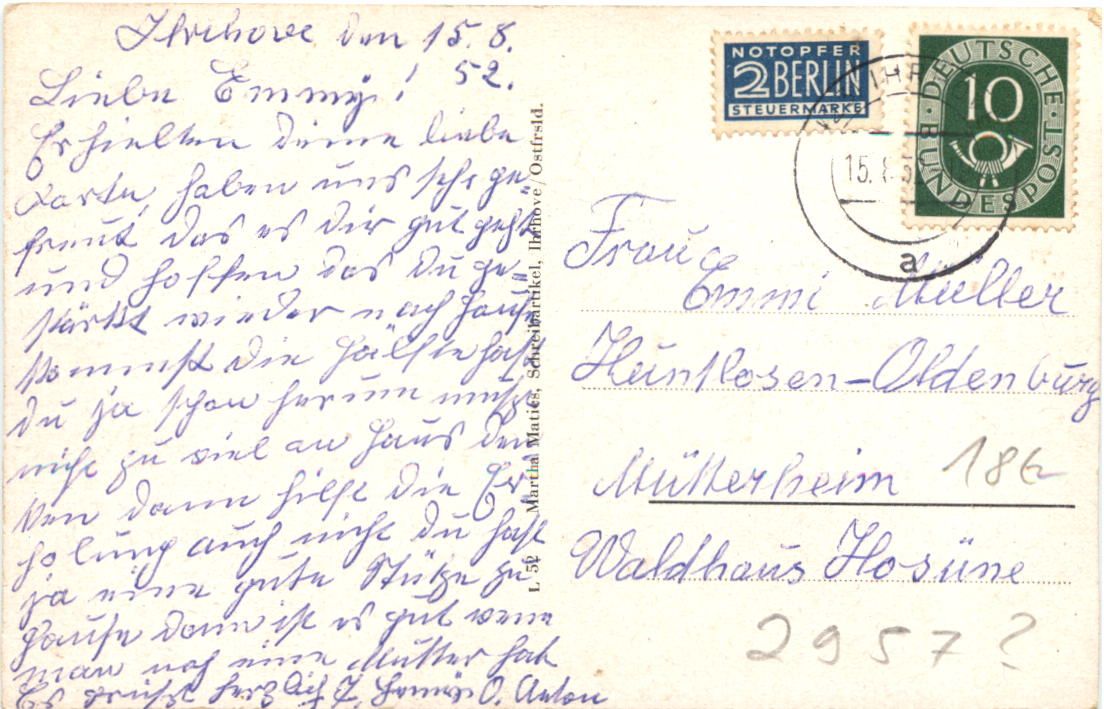 Ihrhove den 15.8.
52.
Liebe Emmy!
Erhielten deine liebe
Karte, haben uns sehr ge=
freut das es dir gut geht
und hoffen das du ge=
stärkt wieder nach Hause
kommst die Hälfte hast
du ja schon herum mußt
nicht zu viel an Haus den
ken dann hilft die Er
holung auch nicht du hast
ja eine gute Stütze zu
Hause dann ist es gut wenn
man noch eine Mutter hat
Es grüßt herzlich T. O. Anton
L 52 Martha Maties, Schreibartikel, Ihrhove/Ostfrsld.
NOTOPFER
2 BERLIN
STEUERMARKE
DEUTSCHE BUNDESPOST
10
15. 8. 5
a
Frau
Emmi Müller
Huntlosen-Oldenburg
Mütterheim
Waldhaus Hosüne
2957?